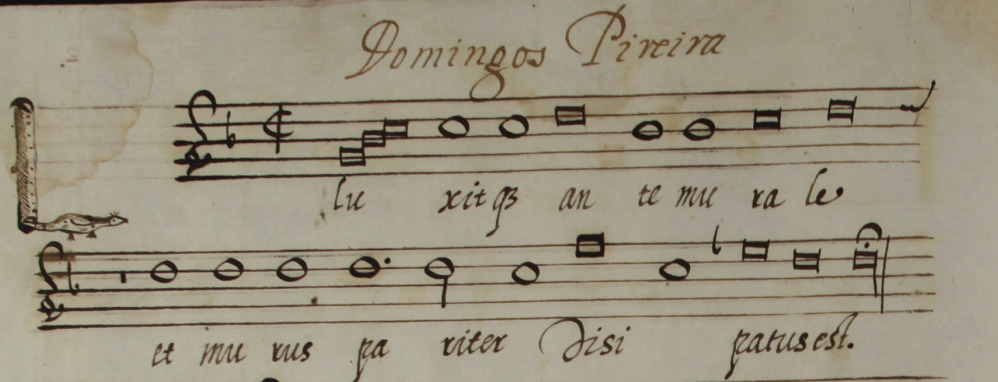 Domingos Pireira
lu xitqз an te mu ra le
et mu rus pa riter Disi patus est.